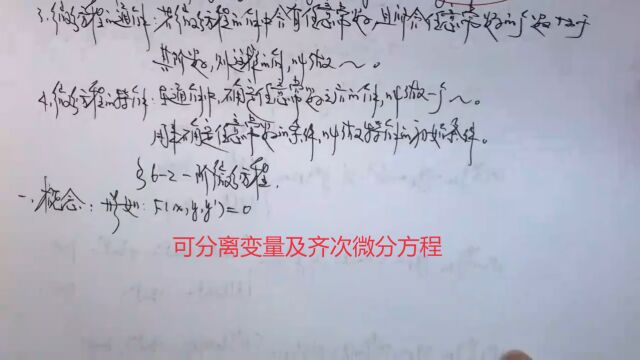 3.微分方程的通解:若微分方程的解中含有任意常数,且所含任意常数的个数等于
其阶数,则这样的解,叫做~。
4.微分方程的特解:在通解中,确定任意常数之后的解,叫做一个~。
用来确定任意常数的条件,叫做特解的初始条件。
§6-2 一阶微分方程.
一.概念:形如:F(x,y,y')=0
可分离变量及齐次微分方程